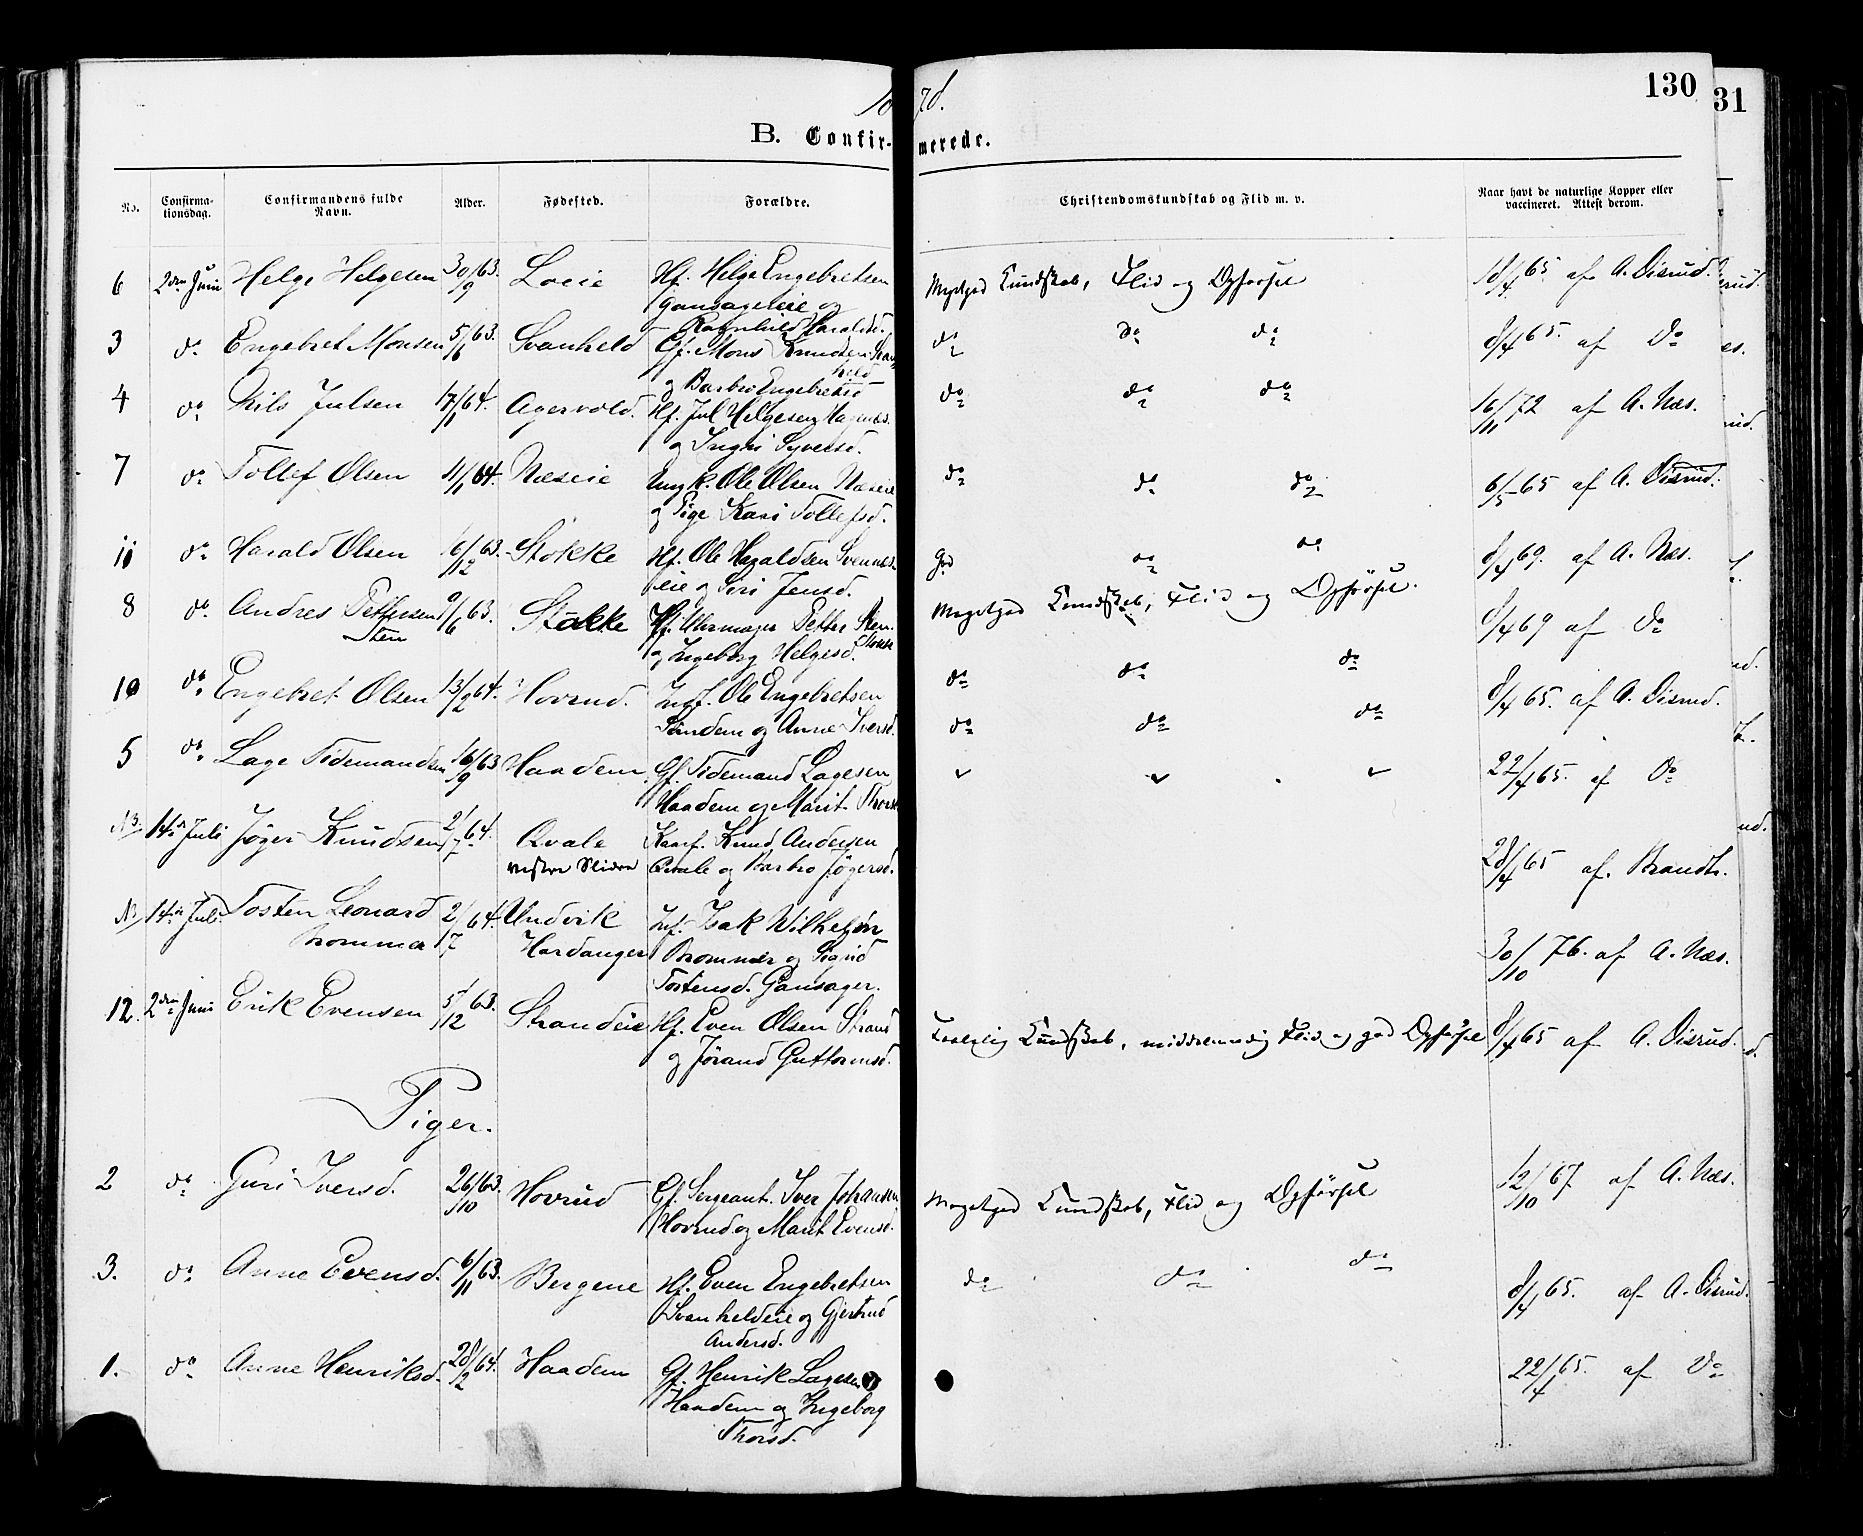 130
31
B. Confir- merede.
No. Confirma- tionsdag. Confirmandens fulde Navn. Alder. Fødested. Forældre. Christendomskundskab og Flid m. v. Naar havt de naturlige Kopper eller vaccineret. Attest derom.
6 2den Juni Helge Helgesen 30/9 63. Loeie Hf. Helge Engebretsen Megetgod Kundskab, Flid og Opførsel 18/4 65 af A. Disrud.
Gansagereie og
Ragnhild Haraldsd.
3 do Engebret Monsen 5/6 63. Svanheld Gf. Mons Knudsen Svan- do do do 8/4 65. af Do
held
og Barbro Engebretsd
4 do Nils Julsen 17/1 64. Agervold. Hf. Jul Helgesen do do do 16/11 72 af A. Næs.
og Ingri Syversd.
7 do Tollef Olsen 11/1 64. Næseie Ungk. Ole Olsen Næseie do do do 6/5 65 af A. Disrud.
og Pige Kari Tollefsd.
11 do Harald Olsen 16/12 63. Stokke Hf. Ole Haraldsen Svennes- god do do 8/4 69. af A. Næs.
eie og Siri Jensd.
8 do Andres Pettersen 9/6 63. Stokke Hf. Uhrmager Petter Sten Megetgod Kundskab, Flid og Opførsel. 8/4 69 af Do
Sten
og Ingeborg Helgesd.
10 do Engebret Olsen 13/2 64. Hovrud. Indf. Ole Engebretsen do do do 8/4 65. af A. Disrud.
Strandem og Anne Iversd. do do do
5 do Lage Tidemandsen 16/9 63 Haadem Gf. Tidemand Lagesen 22/4 65. af Do
Haadem og Marit Thorsd
14de Juli Jøger Knudsen 2/7 64. Qvale Kaarf. Knud Andersen 28/4 65 af. Brandt.
vestre Slidre Qvale og Barbro Jøgersd.
14de Juli Tosten Leonard 2/7 64. Undvik Inf. Isak Wilhelm 30/10 76. af A. Næs.
Brommer Hardanger Brommer og Sigrid
Tostensd. Gansager.
12. 2den Juni Erik Evensen 5/12 63. Strandeie Hf. Even Olsen Strand Taalelig Kundskab, middelmaadig Flid og god Opførsel 8/4 65 af A. Disrud.
og Jørand Guttormsd.
Piger.
2 do Guri Iversd. 26/10 63. Hovrud Gf. Sergeant. Iver Johansen Megetgod Kundskab, Flid og Opførsel 12/10 67 af A. Næs.
Hovrud og Marit Evensd.
3. do Anne Evensd. 6/11 63. Bergene Hf. Even Engebretsen do do do 8/4 65. af A. Disrud.
Svanheldeie og Gjertrud
Andersd.
1. do Anne Henriksd. 28/2 64. Haadem Gf. Henrik Lagesen 22/4 65. af Do
Haadem og Ingeborg
Thorsd.